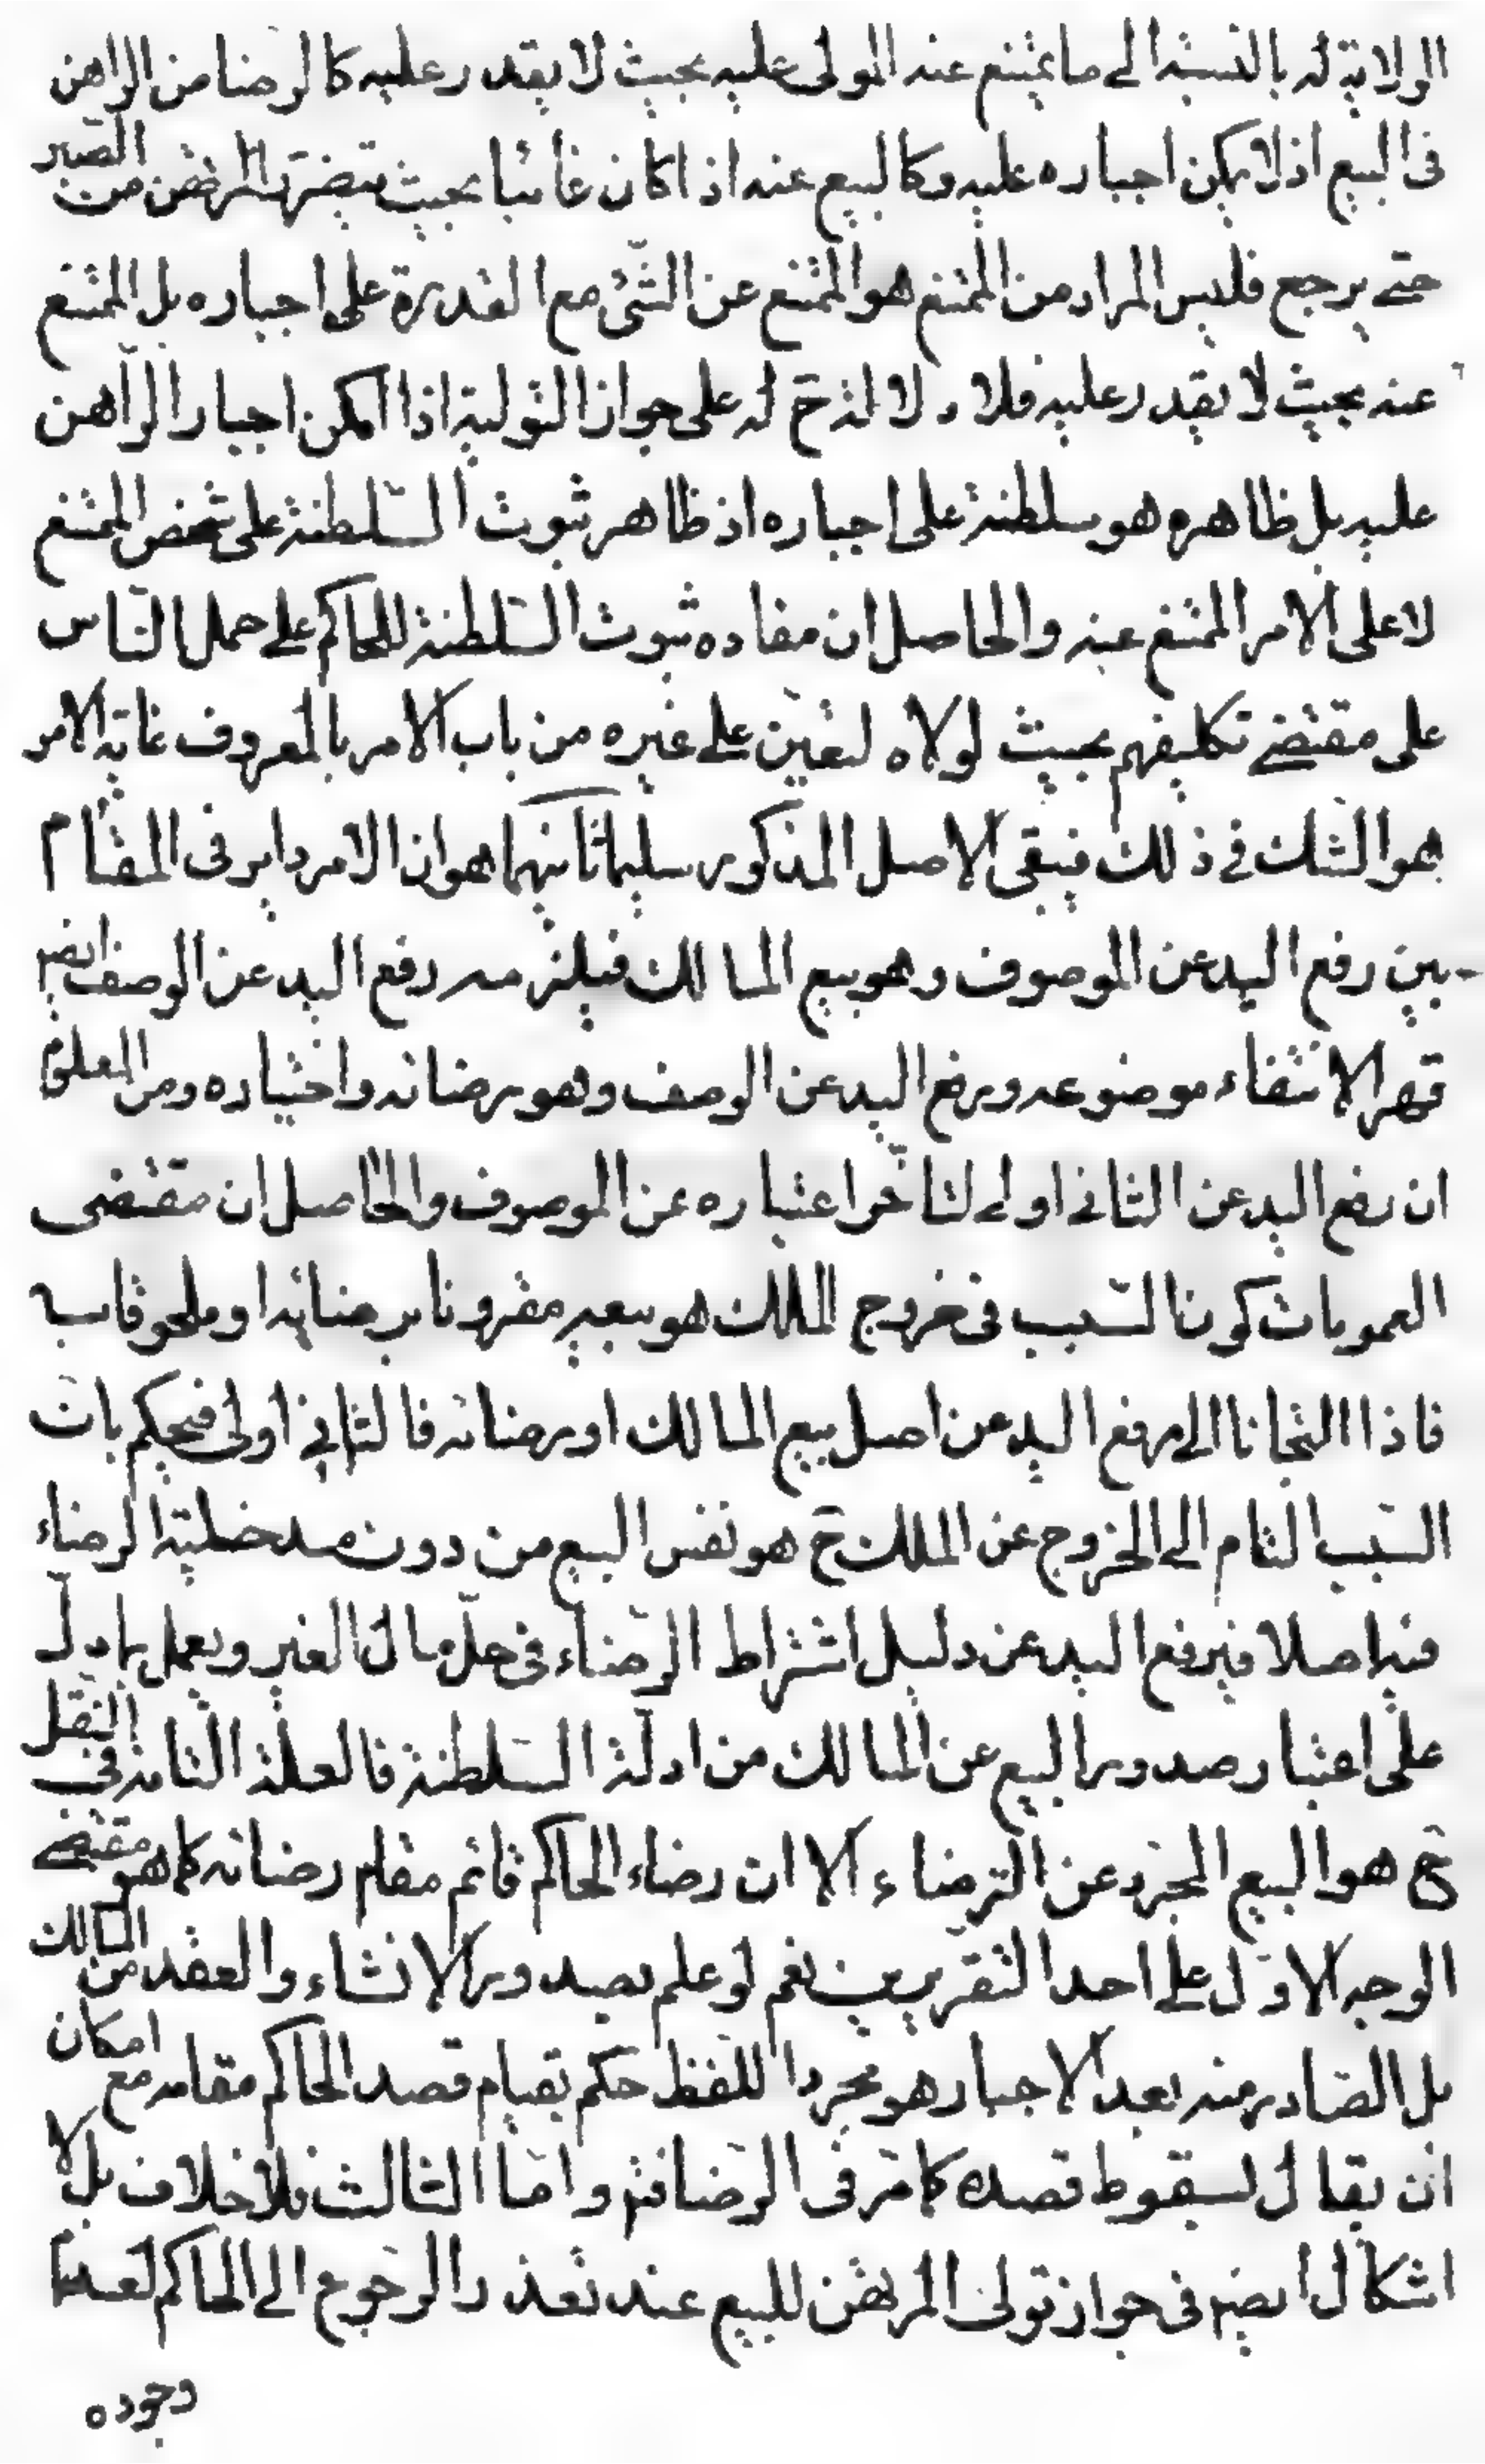 الولاية له بالنسبة الى ما يمتنع عنه المولى عليه بحيث لا يقدر عليه كالرضا من الراهن
فى البيع اذ لا يمكن اجباره عليه وكالبيع عنه اذا كان غائبا بحيث يتضرر المرتهن من الصبر
حتى يرجع فليس المراد من الممتنع هو الممتنع عن الشئ مع القدرة على اجباره بل الممتنع
عنه بحيث لا يقدر عليه فلا دلالة ح له على جواز التولية اذا امكن اجبار الراهن
عليه بل ظاهره هو سلطنة على اجباره اذ ظاهره ثبوت السلطنة على شخص الممتنع
لا على الامر الممتنع عنه والحاصل ان مفاده ثبوت السلطنة للحاكم على حمل الناس
على مقتضى تكليفهم بحيث لولاه لتعين على غيره من باب الامر بالمعروف غاية الامر
هو الشك فى ذلك فيبقى الاصل المذكور سليما ثانيهما هو ان الامر داير فى المقام
بين رفع اليد عن الموصوف وهو بيع المالك فيلزمه رفع اليد عن الوصف ايضا
قهرا لانتفاء موضوعه ورفع اليد عن الوصف وهو رضائه واختياره ومن المعلوم
ان رفع اليد عن الثانى اولى لتاخر اعتباره عن الموصوف والحاصل ان مقتضى
العمومات كون السبب فى خروج الملك هو بيعه مقرونا برضائه او ملحوقا به
فاذا التجانا الى رفع اليد عن اصل بيع المالك او رضائه فالثانى اولى فيحكم بان
السبب التام الى الخروج عن الملك ح هو نفس البيع من دون مدخلية الرضاء
فيه اصلا فيرفع اليد عن دليل اشتراط الرضاء فى حل مال الغير ويعمل بما دل
على اعتبار صدور البيع عن المالك من ادلة السلطنة فالعلة التامة فى النقل
ح هو البيع المجرد عن الرضاء الا ان رضاء الحاكم قائم مقام رضائه كما هو مقتضى
الوجه الاول على احد التقريبين نعم لو علم بصدور الانشاء والعقد من المالك
بل الصادر منه بعد الاجبار هو مجرد اللفظ حكم بقيام قصد الحاكم مقامه مع امكان
ان يقال بسقوط قصده كما مر فى الرضا فتم واما الثالث فلا خلاف بل لا
اشكال ايضا فى جواز تولى المرتهن للبيع عند تعذر الرجوع الى الحاكم لعدم
وجوده